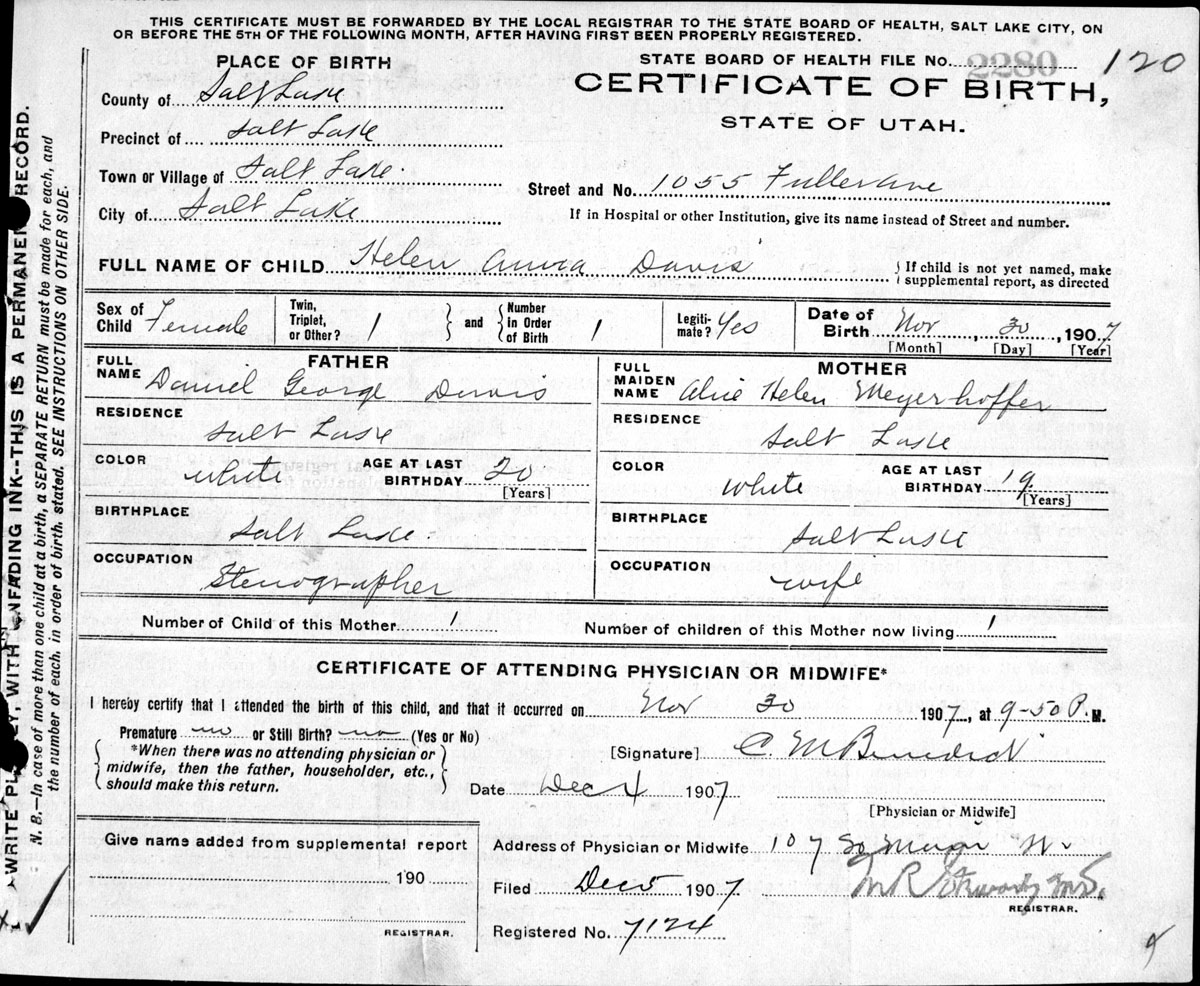 THIS CERTIFICATE MUST BE FORWARDED BY THE LOCAL REGISTRAR TO THE STATE BOARD OF HEALTH, SALT LAKE CITY, ON
OR BEFORE THE 5TH OF THE FOLLOWING MONTH, AFTER HAVING FIRST BEEN PROPERLY REGISTERED.
PLACE OF BIRTH
STATE BOARD OF HEALTH FILE No. 2280 120
CERTIFICATE OF BIRTH,
STATE OF UTAH.
County of Salt Lake
Precinct of Salt Lake
Town or Village of Salt Lake.
City of Salt Lake
Street and No. 1055 Fuller Ave
If in Hospital or other Institution, give its name instead of Street and number.
FULL NAME OF CHILD Helen Davis
If child is not yet named, make
supplemental report, as directed
Sex of Child Female
Twin, Triplet, or Other? 1
and
Number in Order of Birth 1
Legiti-mate? Yes
Date of Birth Nov, 30, 1907
[Month] [Day] [Year]
FATHER
FULL NAME Daniel George Davis
RESIDENCE
Salt Lake
COLOR white AGE AT LAST BIRTHDAY 20
[Years]
BIRTHPLACE
Salt Lake
OCCUPATION
Stenographer
MOTHER
FULL MAIDEN NAME Alice Helen Meyerhoffer
RESIDENCE
Salt Lake
COLOR White AGE AT LAST BIRTHDAY 19
[Years]
BIRTHPLACE
Salt Lake
OCCUPATION
wife
Number of Child of this Mother 1
Number of children of this Mother now living 1
CERTIFICATE OF ATTENDING PHYSICIAN OR MIDWIFE*
I hereby certify that I attended the birth of this child, and that it occurred on Nov 30 1907, at 9-50 P. M.
Premature no or Still Birth? no (Yes or No)
*When there was no attending physician or
midwife, then the father, householder, etc.,
should make this return.
[Signature] C. M Benedict
Date Dec 4 1907
[Physician or Midwife]
Give name added from supplemental report
190
REGISTRAR.
Address of Physician or Midwife 107 So
Filed Dec 5 1907
REGISTRAR.
Registered No. 7124
WRITE PL Y, WITH NFADING INK--THIS IS A PERMANEN RECORD.
N. B.—In case of more than one child at a birth, a SEPARATE RETURN must be made for each, and
the number of each, in order of birth, stated. SEE INSTRUCTIONS ON OTHER SIDE.